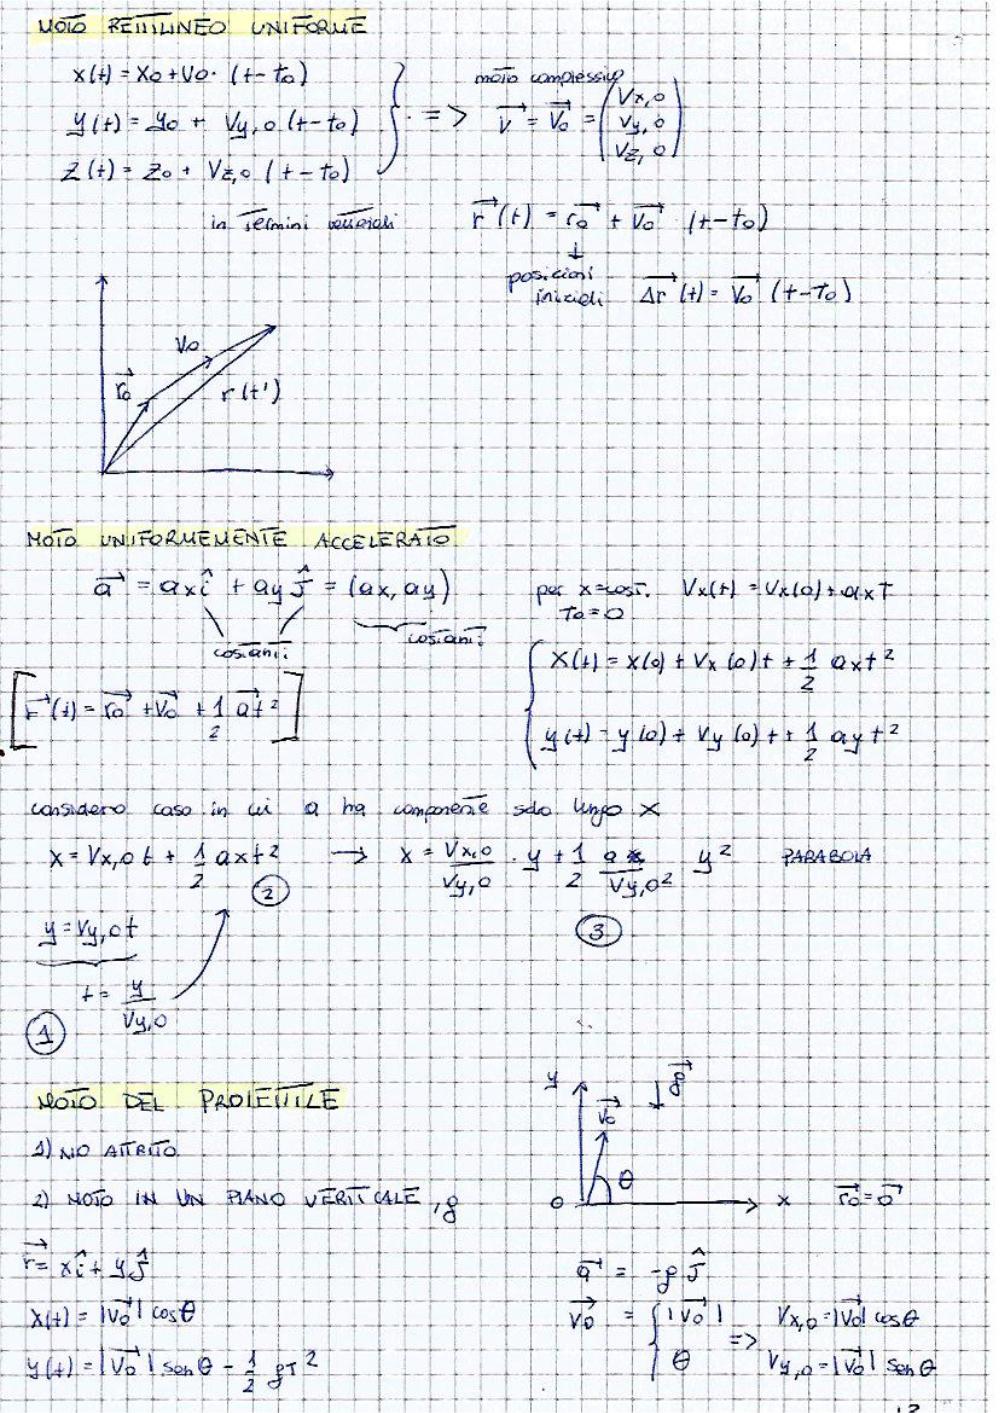 MOTO RETTILINEO UNIFORME
x(t) = x0 + v0 · (t - t0)
y(t) = y0 + Vy,0 (t - t0)
z(t) = z0 + Vz,0 (t - t0)
=> moto complessivo
v⃗ = v⃗0 = (Vx,0 Vy,0 Vz,0)
in termini vettoriali r⃗(t) = r⃗0 + v⃗0 · (t - t0)
↓
posizioni
iniziali Δr⃗(t) = v⃗0 (t - t0)
v0
r⃗0
r(t')
MOTO UNIFORMEMENTE ACCELERATO
a⃗ = ax î + ay ĵ = (ax, ay)
costanti costanti
per x = cost. Vx(t) = Vx(0) + axt
t0 = 0
x(t) = x(0) + Vx(0)t + 1/2 axt²
[r⃗(t) = r⃗0 + v⃗0 + 1/2 a⃗t²]
y(t) = y(0) + Vy(0)t + 1/2 ayt²
considero caso in cui a ha componente solo lungo x
x = Vx,0 t + 1/2 axt² → x = Vx,0/Vy,0 · y + 1/2 ax/Vy,0² y² PARABOLA
②
③
y = Vy,0t
t = y/Vy,0
①
MOTO DEL PROIETTILE
1) NO ATTRITO
2) MOTO IN UN PIANO VERTICALE, g
y
g⃗
v⃗0
θ
0
x
r⃗0 = 0⃗
r⃗ = xî + yĵ
a⃗ = -g ĵ
x(t) = |v⃗0| cosθ
v⃗0 = { |v⃗0| θ => Vx,0 = |v⃗0| cosθ
y(t) = |v⃗0| senθ - 1/2 gt²
Vy,0 = |v⃗0| senθ